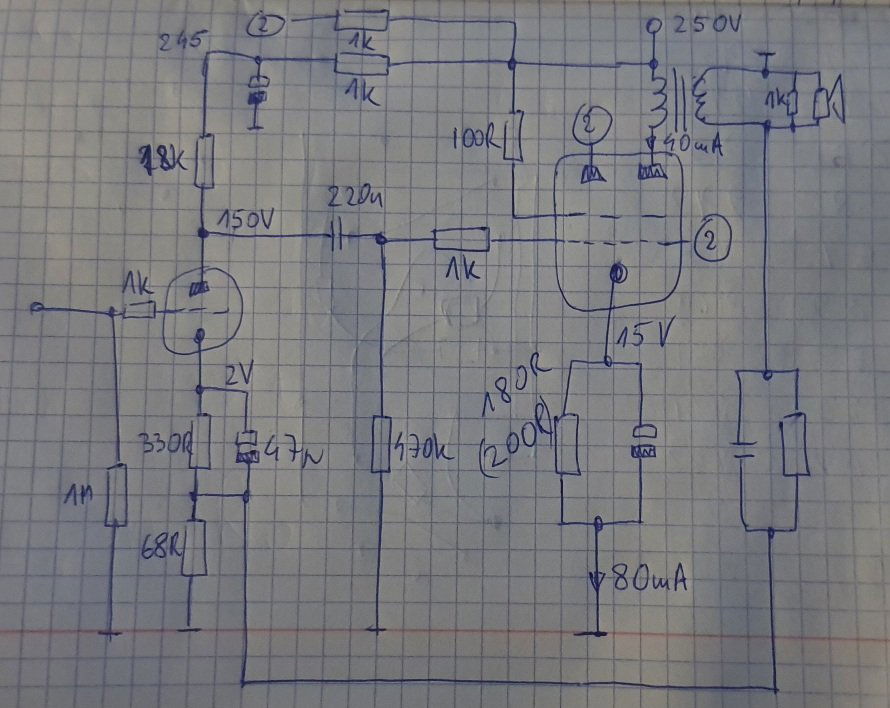 2
1K
250V
245
1K
1K
100R
2
40mA
18K
220n
150V
2
1K
1K
15V
2V
180R
(200R)
330R
47µ
470k
1M
68R
80mA